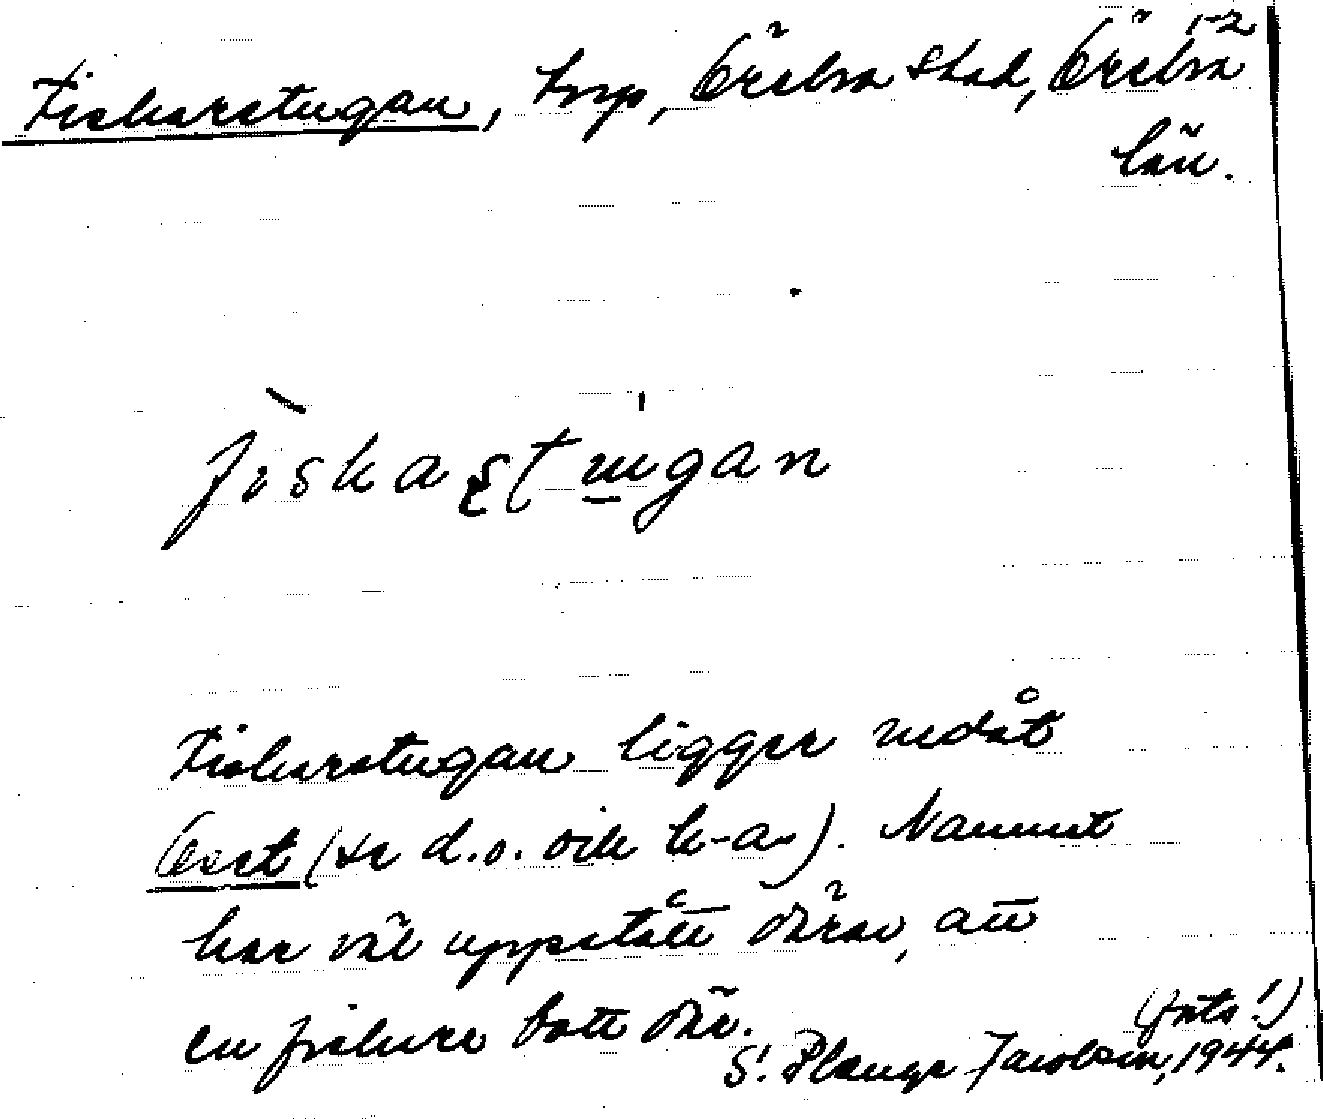 1-2
Fiskarstugan, torp, Örebro stad, Örebro
län.
fiskastugan
Fiskarstugan ligger nedåt
(se d.o. och k-a). Namnet
har väl uppstått därav, att
en fiskare bott där.
(foto!)
S! Jacobson, 1944.